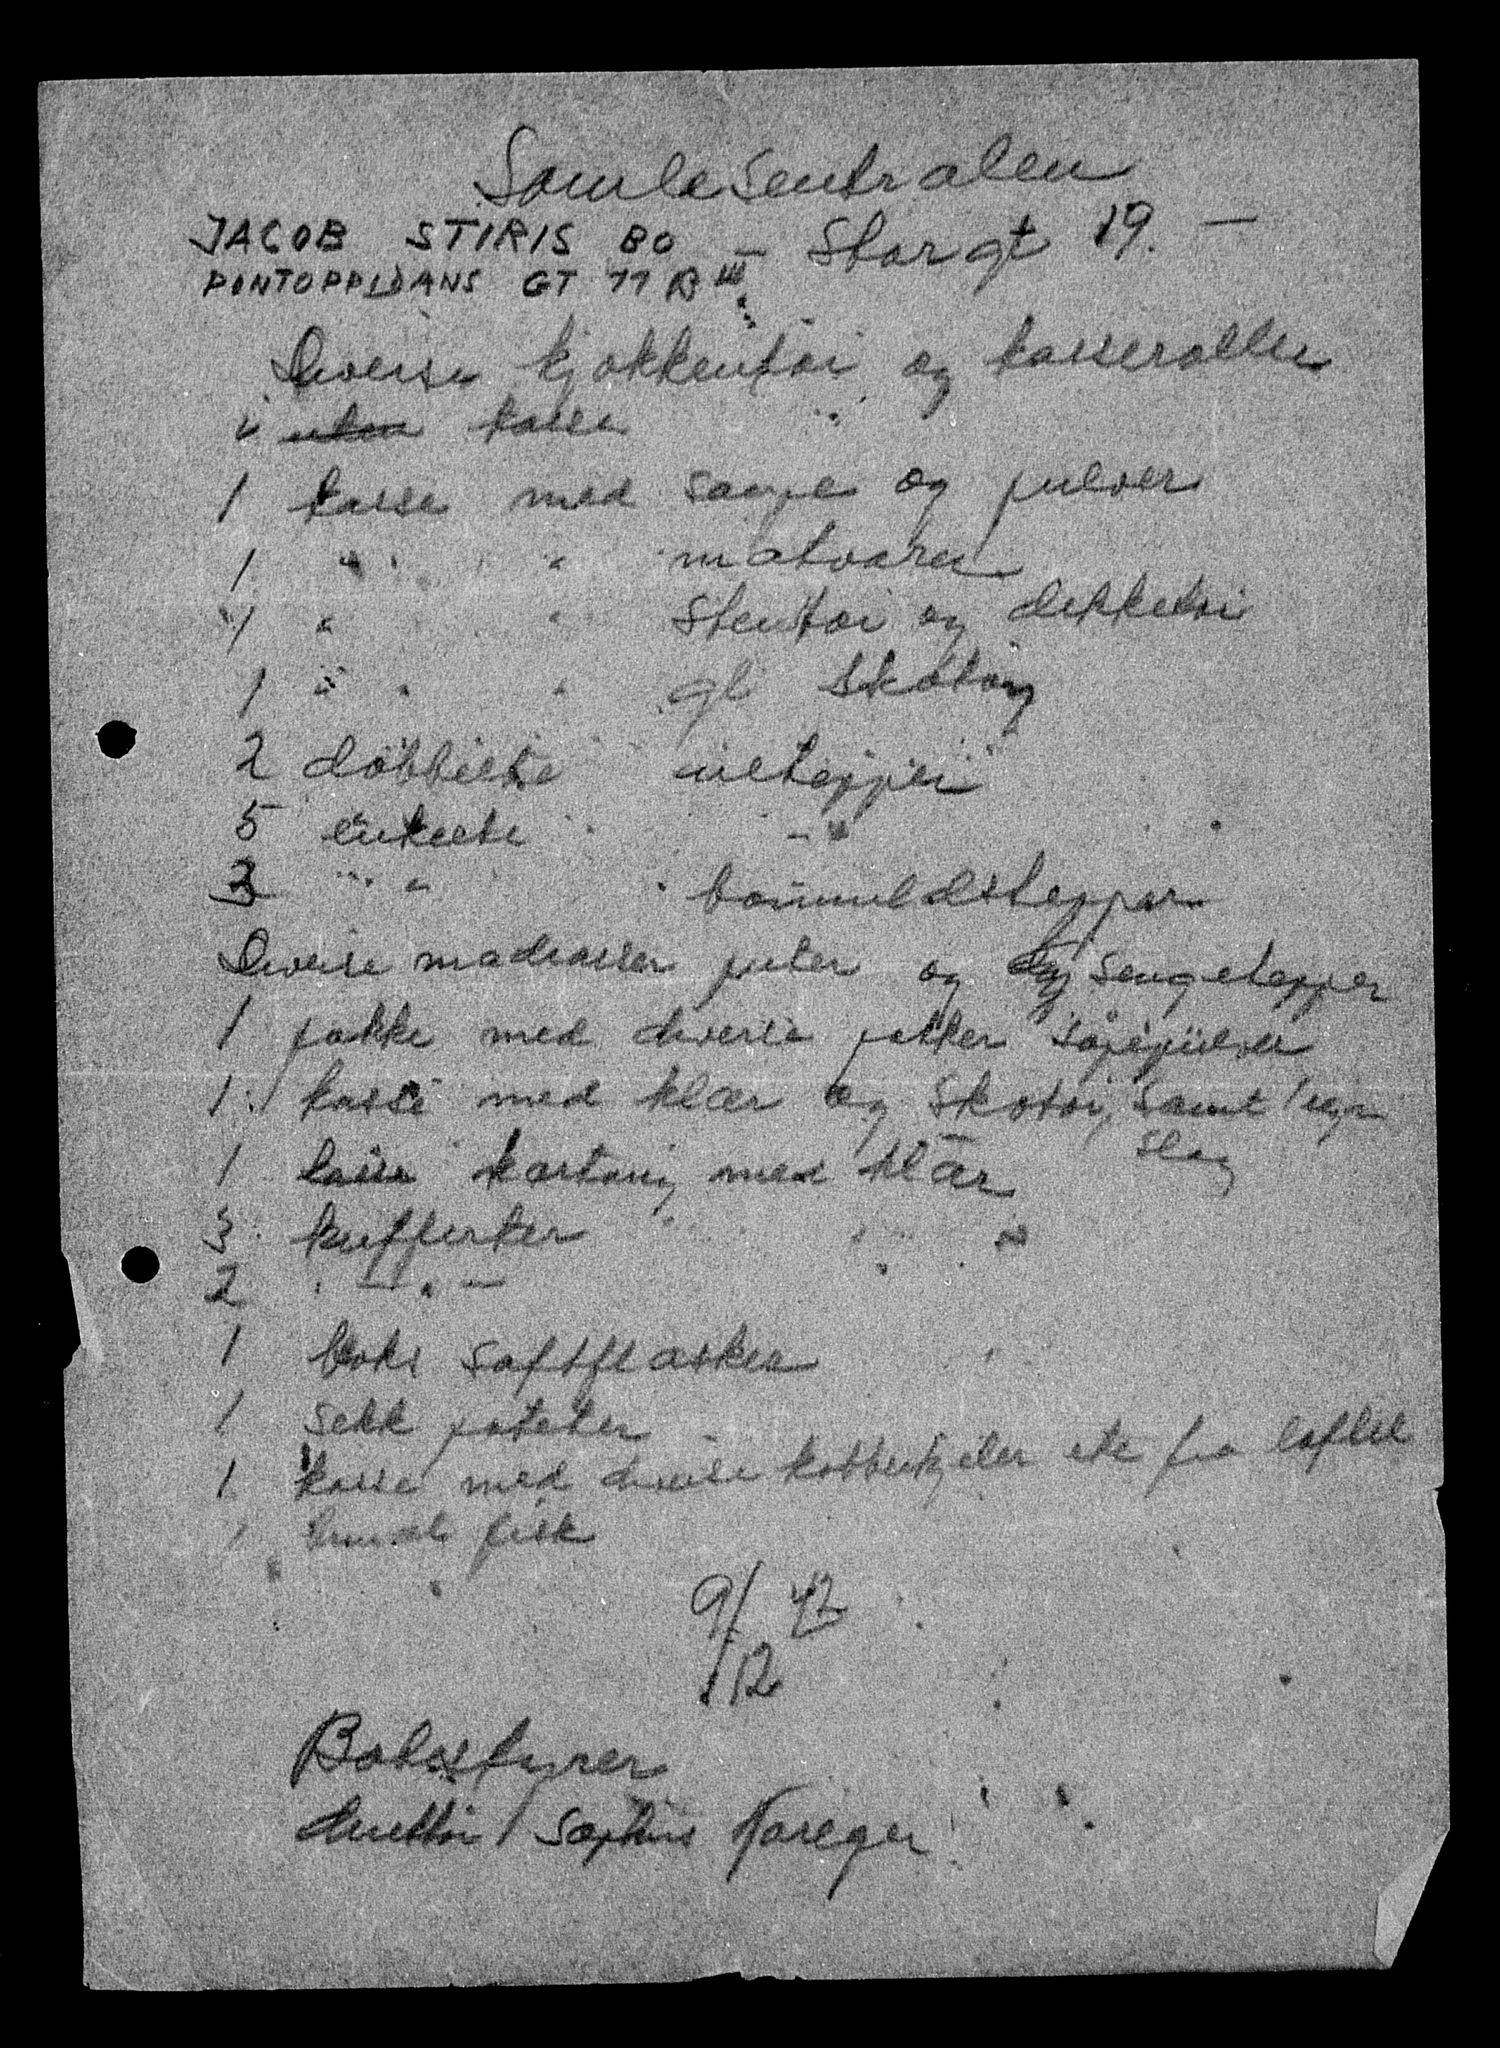 Samlesentralen
JACOB STIRIS BO – Storgt 19. –
PONTOPPIDANS GT 11 B III
Diverse kjøkkentøi og kasseroller
i kasse
1 kasse med saape og pulver
1 " " matvarer
4 " " Stentøi og dekketøi
1 " " gl skotøy
2 dobbelte ultepper
5 enkelte – " 
3 " " bomuldstepper
Diverse madrasser puter og sengetepper
1 pakke med diverse pakker såpepulver
1 kasse med klær og Skotøi, samt 1 regn
slag
1 kartong med klær
3 kufferter " "
2 – " –
1 boks saftflasker
1 sekk poteter
1 kasse med diverse kobberkjeler etc fra loftet
1 bundt fisk
9/ 42
12
Bobestyrer
Søphus